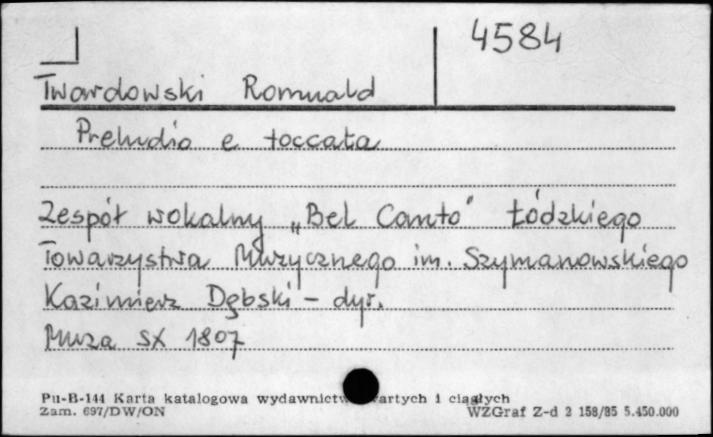 4584
Twardowski Romuald
Preludio e toccata
Zespół wokalny „Bel Canto" Łódzkiego
Towarzystwa Muzycznego im. Szymanowskiego
Kazimierz Dębski – dyr.
Muza SX 1807
Pu-B-144 Karta katalogowa wydawnictw zwartych i ciągłych
Zam. 697/DW/ON WZGraf Z-d 2 158/85 5.450.000